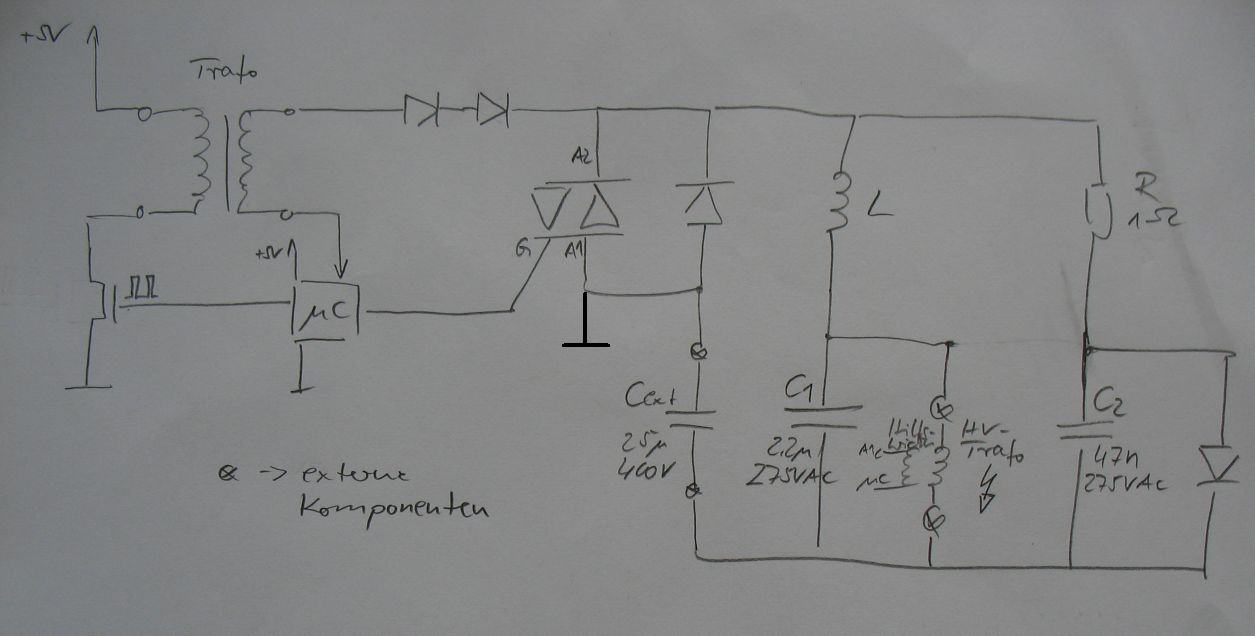 +5V
Trafo
A2
G A1
L
R
1Ω
+5V
μC
Cext
25μ
400V
C1
2,2μ
275VAC
Hilfs-
μC
HV-
Trafo
C2
47n
275VAc
⊗ -> externe
Komponenten